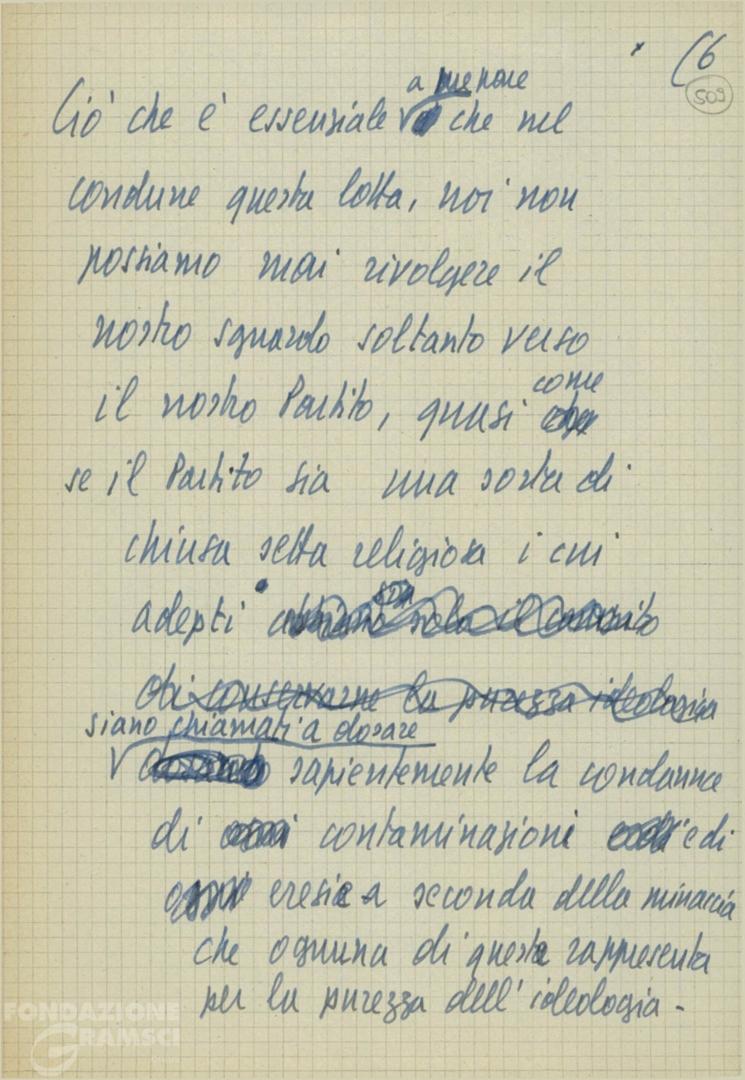 (6
509
a me pare
Ciò che è essenziale che nel
condurre questa lotta, noi non
possiamo mai rivolgere il
nostro sguardo soltanto verso
il nostro Partito, quasi
come
se il Partito sia una sorta di
chiusa setta religiosa i cui
adepti solo il
di conservarne la purezza ideologica
siano chiamati a dosare
sapientemente la condanna
di contaminazioni e di
eresie a seconda della minaccia
che ognuna di queste rappresenta
per la purezza dell'ideologia -
FONDAZIONE
GRAMSCI